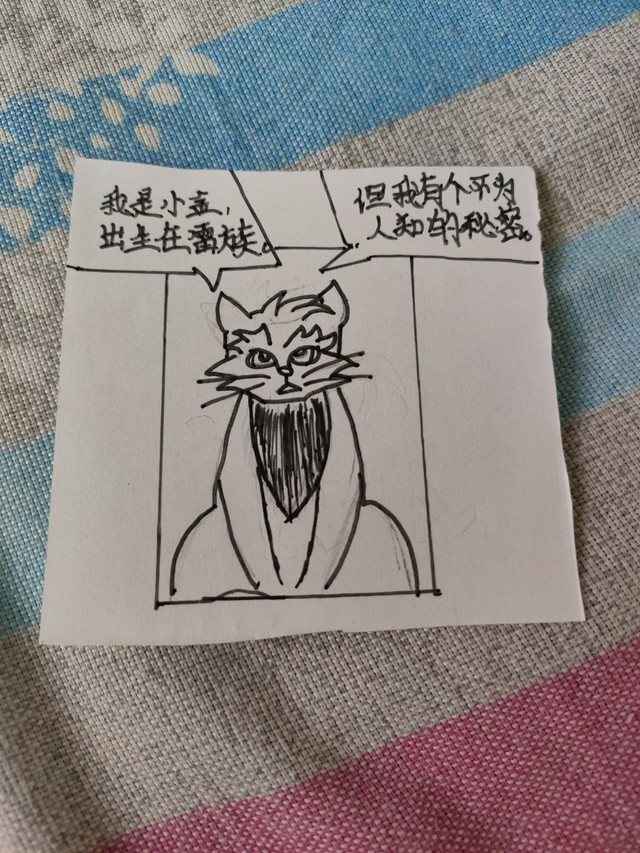 我是小孟,
出生在雷族。
但我有个不为
人知的秘密。